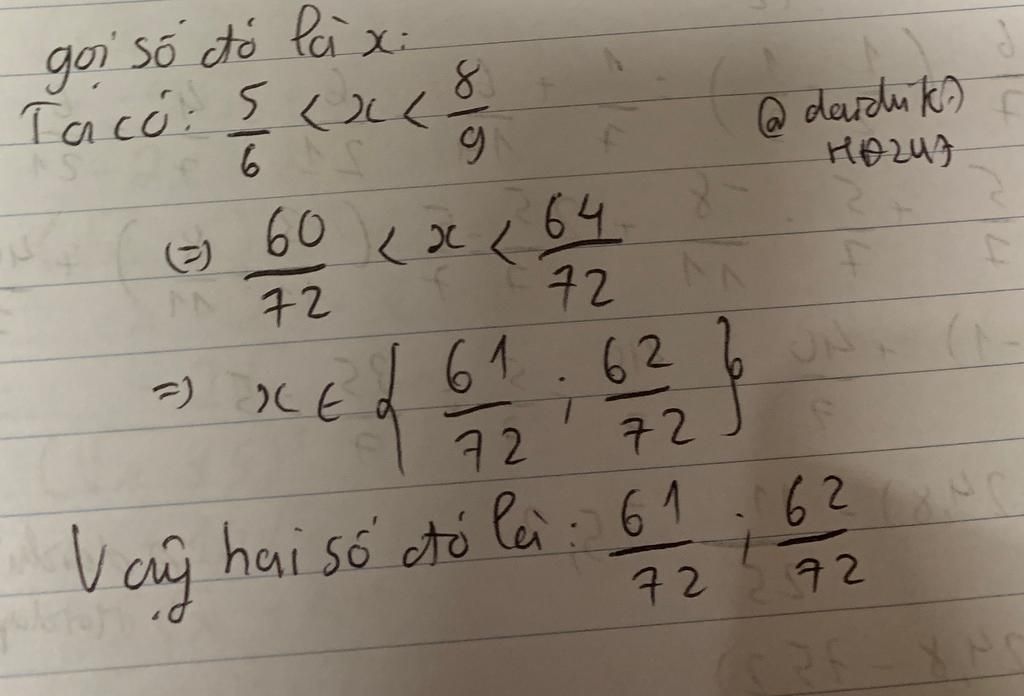 gọi số đó là x:
Ta có: 5/6 < x < 8/9
@
HĐ247
(=) 60/72 < x < 64/72
=) x ∈ { 61/72 ; 62/72 }
Vậy hai số đó là: 61/72 ; 62/72